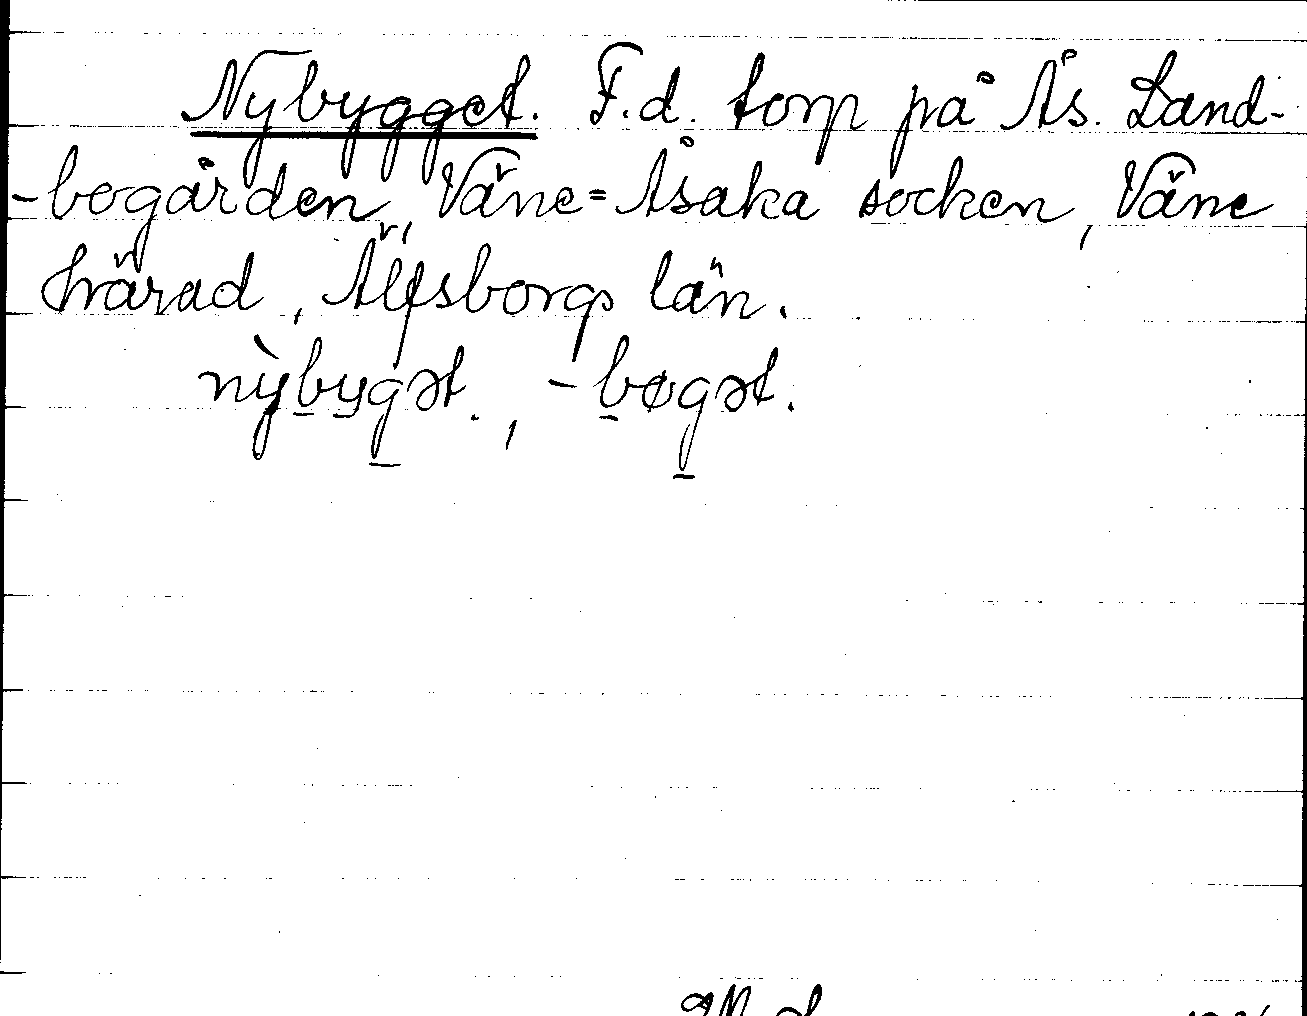 Nybygget. F.d. torp på Ås. Land-
-bogården, Väne=Åsaka socken, Väne
härad, Älfsborgs län.
nỳbygət., -bøgət.